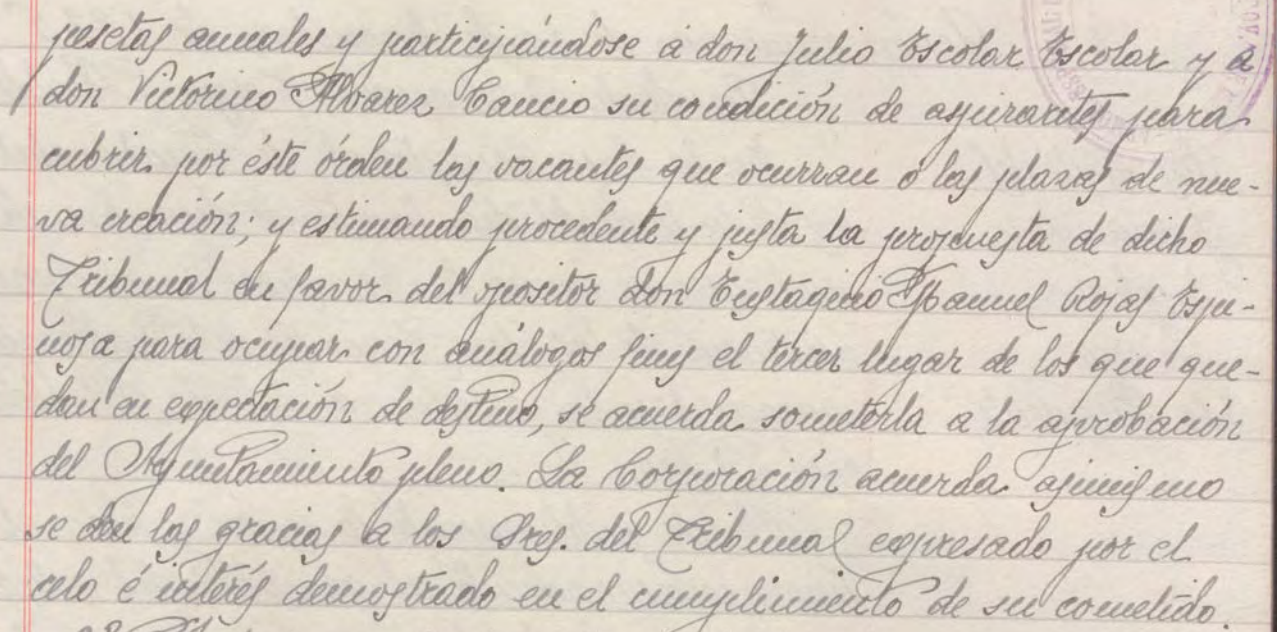 pesetas anuales y participándose á don Julio Escolar Escolar y á
don Victorino Alvarez Cancio su condición de aspirantes para
cubrir por éste órden las vacantes que ocurran ó las plazas de nue-
va creación; y estimando procedente y justa la propuesta de dicho
Tribunal en favor del opositor don Eustaquio Manuel Rojas Espi-
nosa para ocupar con análogos fines el tercer lugar de los que que-
dan en expectación de destino, se acuerda someterla a la aprobación
del Ayuntamiento pleno. La Corporación acuerda asimismo
se den las gracias a los Sres. del Tribunal expresado por el
celo é interés demostrado en el cumplimiento de su cometido.